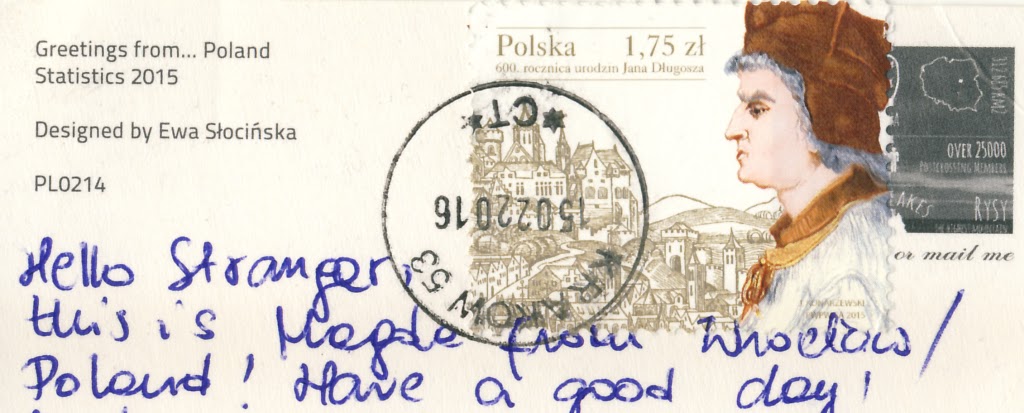 Greetings from... Poland
Statistics 2015
Designed by Ewa Słocińska
PL0214
Polska 1,75 zł
600. rocznica urodzin Jana Długosza
* CT *
15022016
KRAKÓW 53
PWPW S.A. 2015
312.685 KM2
OVER 25000
POSTCROSSING MEMBERS
LAKES
RYSY
THE HIGHEST MOUNTAIN
or mail me
Hello Stranger,
this is Magda from Wrocław/
Poland! Have a good day!